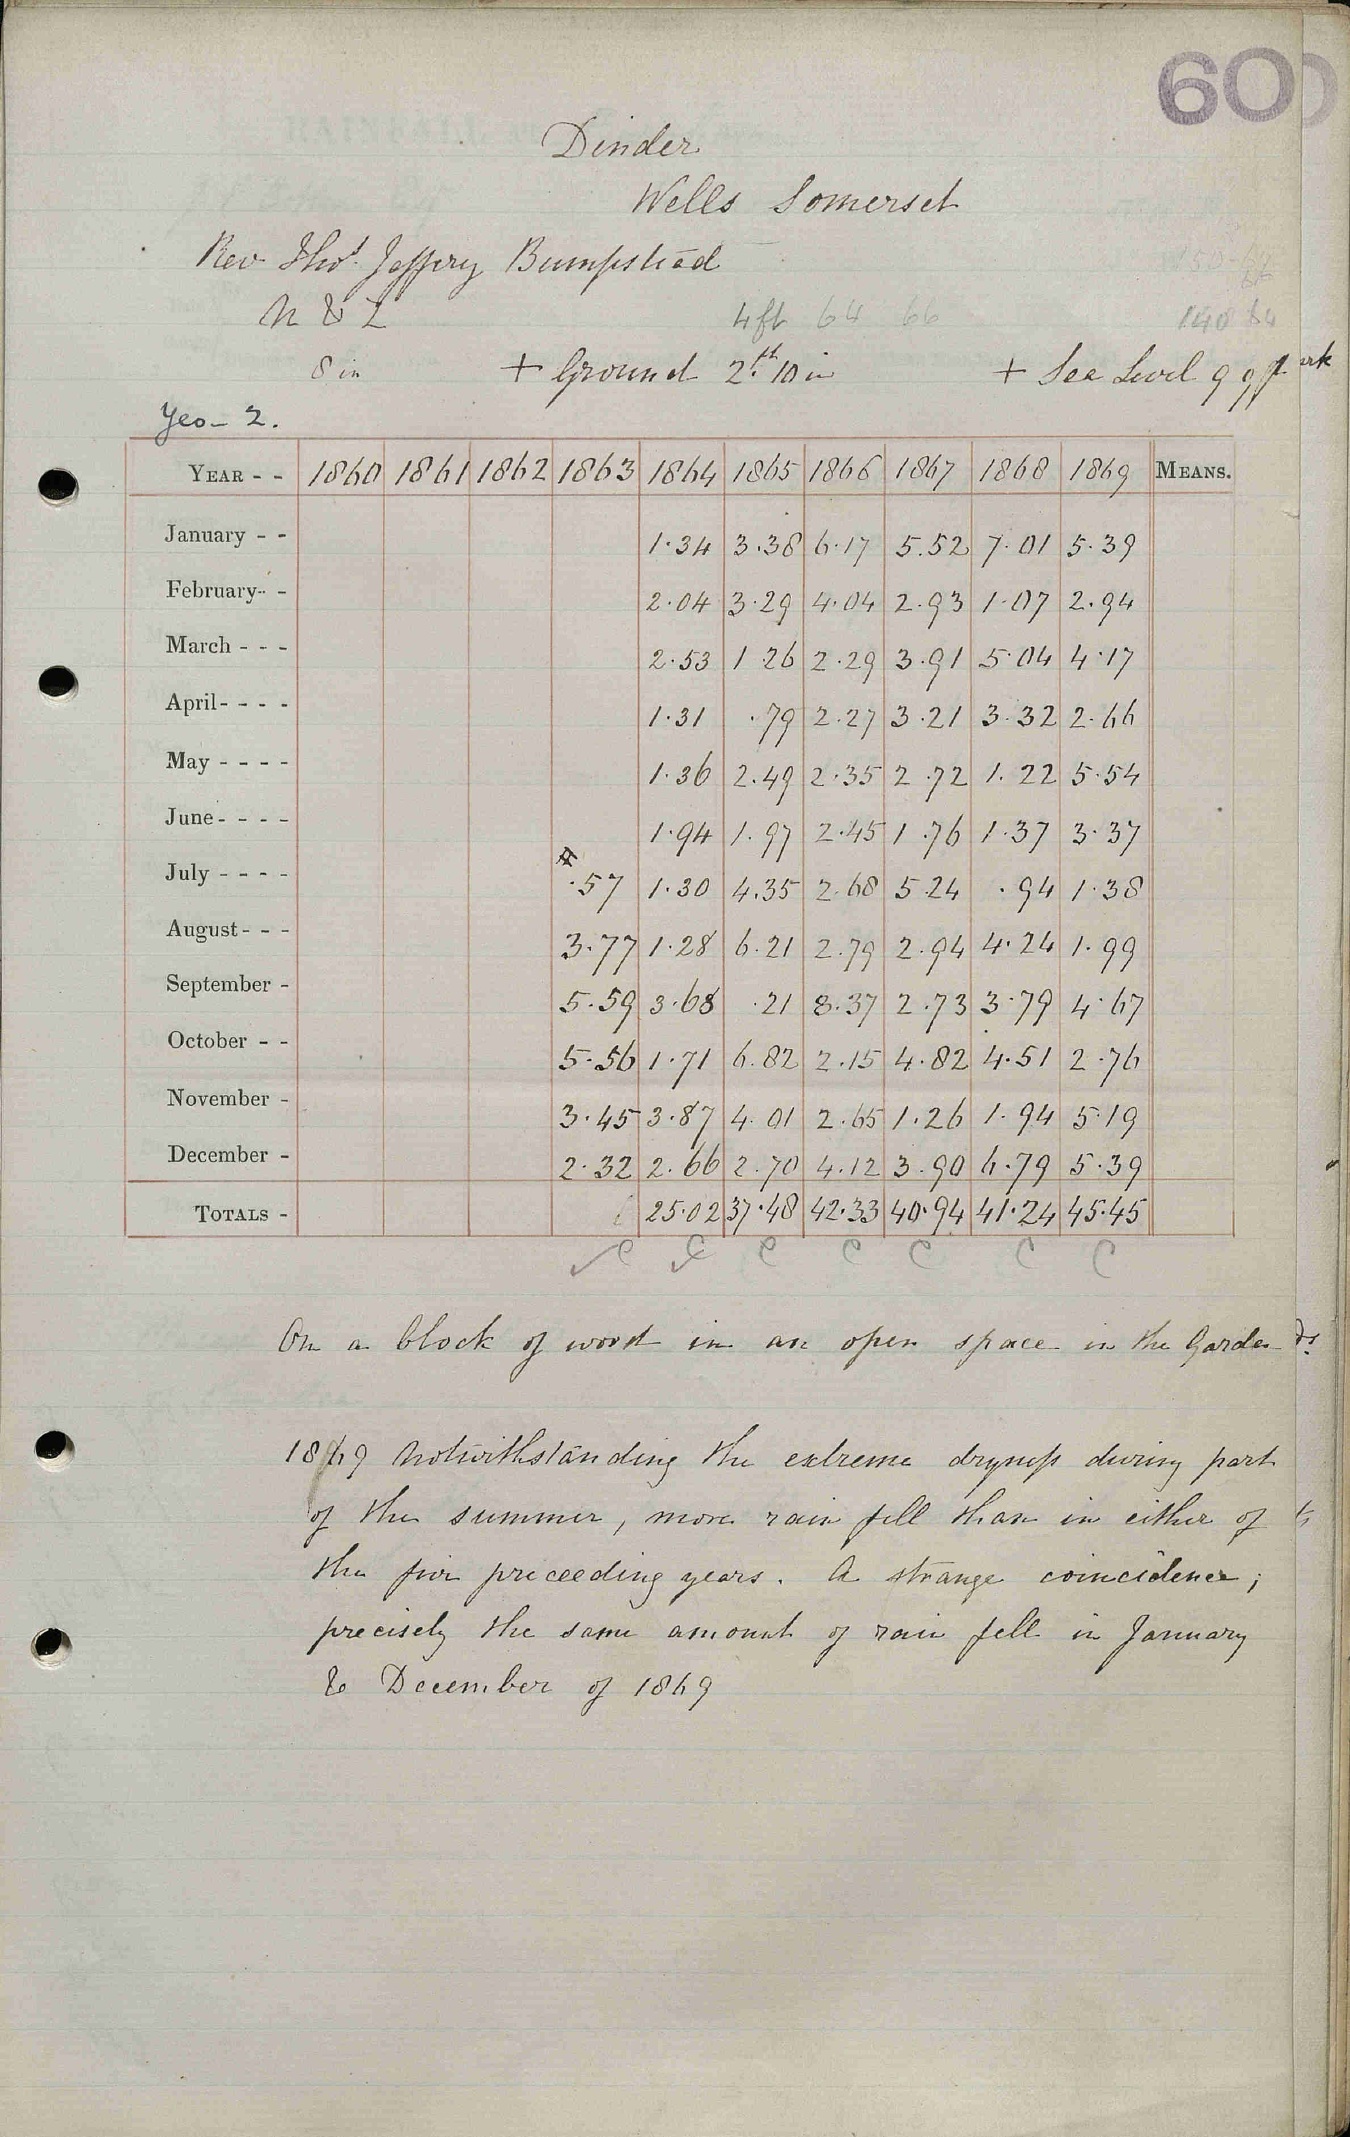 60
Dinder
Wells Somerset
Rev Thos. Jeffery Bumpstead
N & Z
4 ft 64 66
140 64
8 in + Ground 2ft. 10 in + Sea Level 99 ft
Yeo - 2.
YEAR - - 1860 1861 1862 1863 1864 1865 1866 1867 1868 1869 MEANS.
January - - 1.34 3.38 6.17 5.52 7.01 5.39
February - - 2.04 3.29 4.04 2.93 1.07 2.94
March - - - 2.53 1.26 2.29 3.91 5.04 4.17
April - - - - 1.31 .79 2.27 3.21 3.32 2.66
May - - - - 1.36 2.49 2.35 2.72 1.22 5.54
June - - - - 1.94 1.97 2.45 1.76 1.37 3.37
July - - - - .57 1.30 4.35 2.68 5.24 .94 1.38
August - - - 3.77 1.28 6.21 2.79 2.94 4.24 1.99
September - 5.59 3.68 .21 8.37 2.73 3.79 4.67
October - - 5.56 1.71 6.82 2.15 4.82 4.51 2.76
November - 3.45 3.87 4.01 2.65 1.26 1.94 5.19
December - 2.32 2.66 2.70 4.12 3.90 6.79 5.39
TOTALS - 25.02 37.48 42.33 40.94 41.24 45.45
C C C C C C C
On a block of wood in an open space in the Garden
1869 Notwithstanding the extreme dryness during part
of the summer, more rain fell than in either of
the five preceeding years. A strange coincidence;
precisely the same amount of rain fell in January
& December of 1869